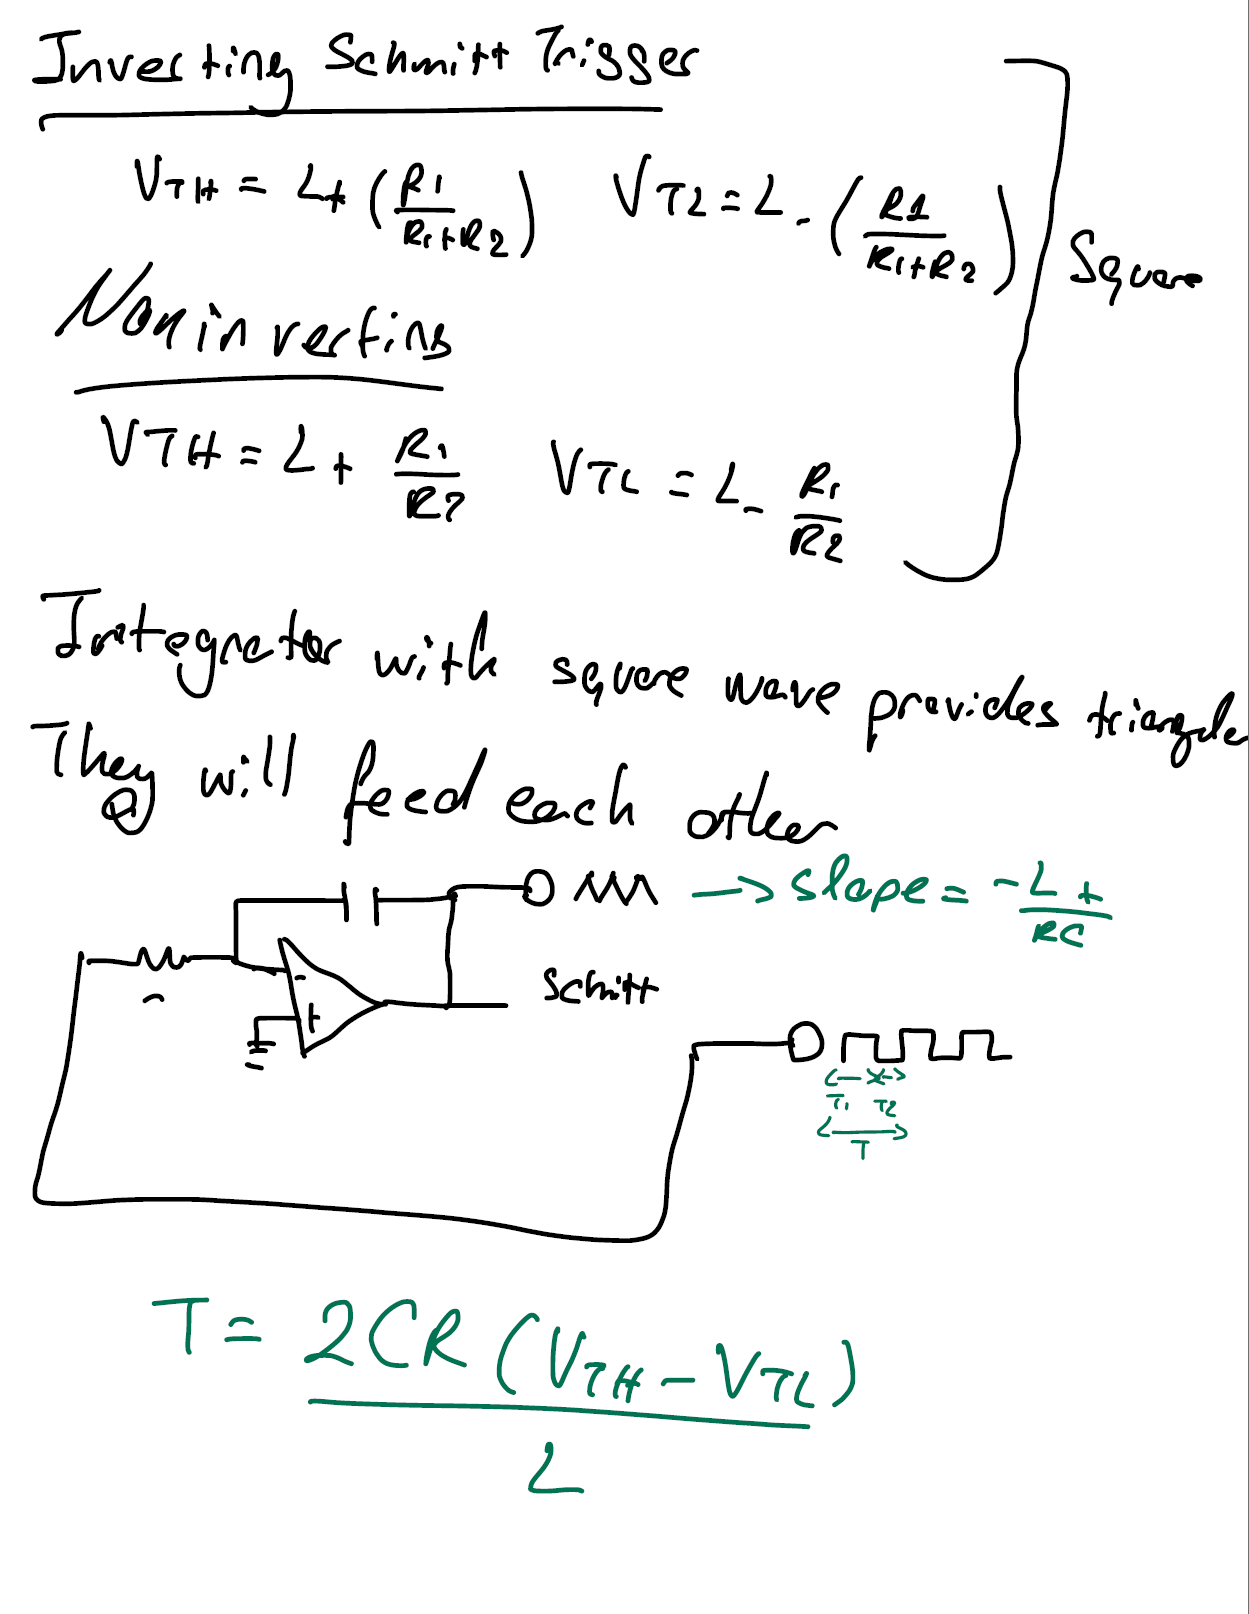 Inverting Schmitt Trigger
VTH = L+ (R1/R1+R2) VTL = L- (R1/R1+R2)
Square
Noninverting
VTH = L+ R1/R2 VTL = L- R1/R2
Integrator with square wave provides triangle
They will feed each other
→ slope = -L+/RC
- +
Schitt
T1 T2
T
T = 2CR (VTH - VTL)/L